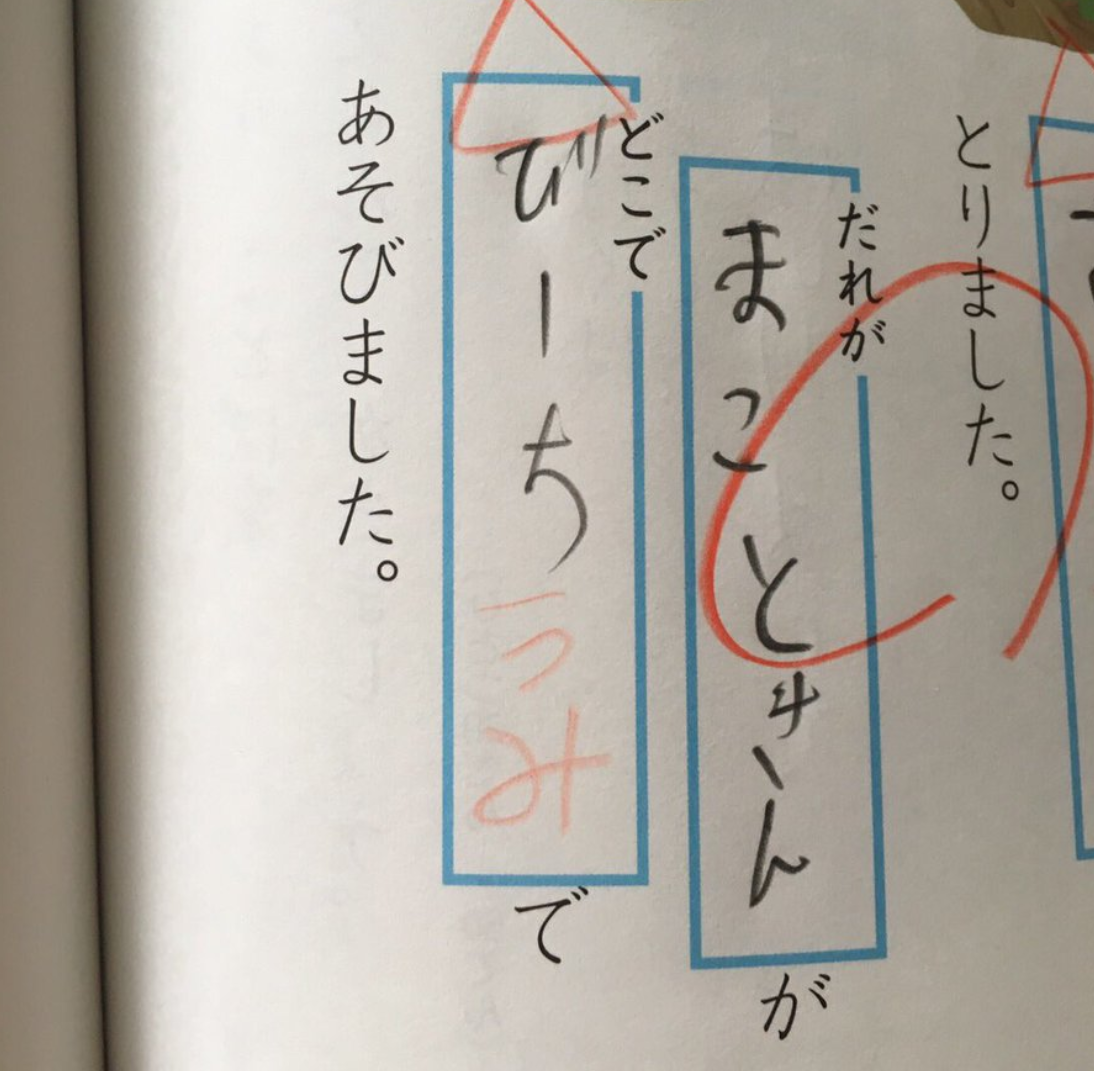 とりました。
だれが
まことさんが
どこで
びーち
うみ
で
あそびました。